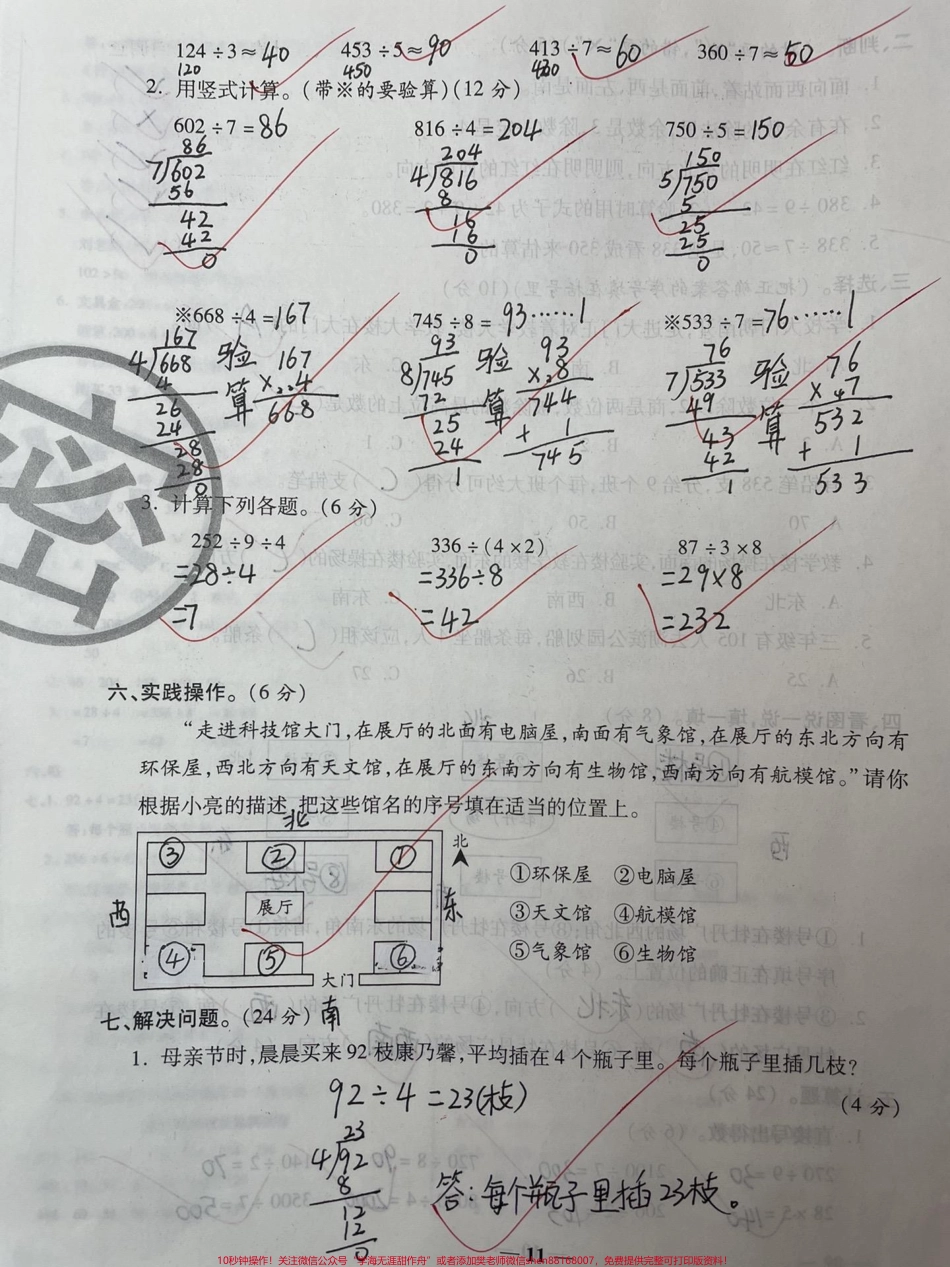 124÷3≈40 453÷5≈90 413÷7≈60 360÷7≈50
120 450 420
2. 用竖式计算。(带※的要验算)(12分)
602÷7=86 816÷4=204 750÷5=150
86 204 150
7/602 4/816 5/750
56 8 5
42 16 25
42 16 25
0 0 0
※668÷4=167 745÷8=93……1 ※533÷7=76……1
167 93 76
4/668 验算 167 8/745 验算 93 7/533 验算 76
4 ×4 72 ×8 49 ×7
26 668 25 744 43 532
24 24 +1 42 +1
28 1 745 1 533
28
0
3. 计算下列各题。(6分)
252÷9÷4 336÷(4×2) 87÷3×8
=28÷4 =336÷8 =29×8
=7 =42 =232
密
六、实践操作。(6分)
“走进科技馆大门,在展厅的北面有电脑屋,南面有气象馆,在展厅的东北方向有
环保屋,西北方向有天文馆,在展厅的东南方向有生物馆,西南方向有航模馆。”请你
根据小亮的描述,把这些馆名的序号填在适当的位置上。
北
③ ② ① 北
①环保屋 ②电脑屋
西 展厅 东
③天文馆 ④航模馆
④ ⑤ ⑥
⑤气象馆 ⑥生物馆
大门
南
七、解决问题。(24分)
1. 母亲节时,晨晨买来92枝康乃馨,平均插在4个瓶子里。每个瓶子里插几枝?
(4分)
92÷4=23(枝)
23
4/92
8
12
12
0
答:每个瓶子里插23枝。
— 11 —
10秒钟操作!关注微信公众号“学海无涯甜作舟”或者添加樊老师微信shen88168007,免费提供完整可打印版资料!